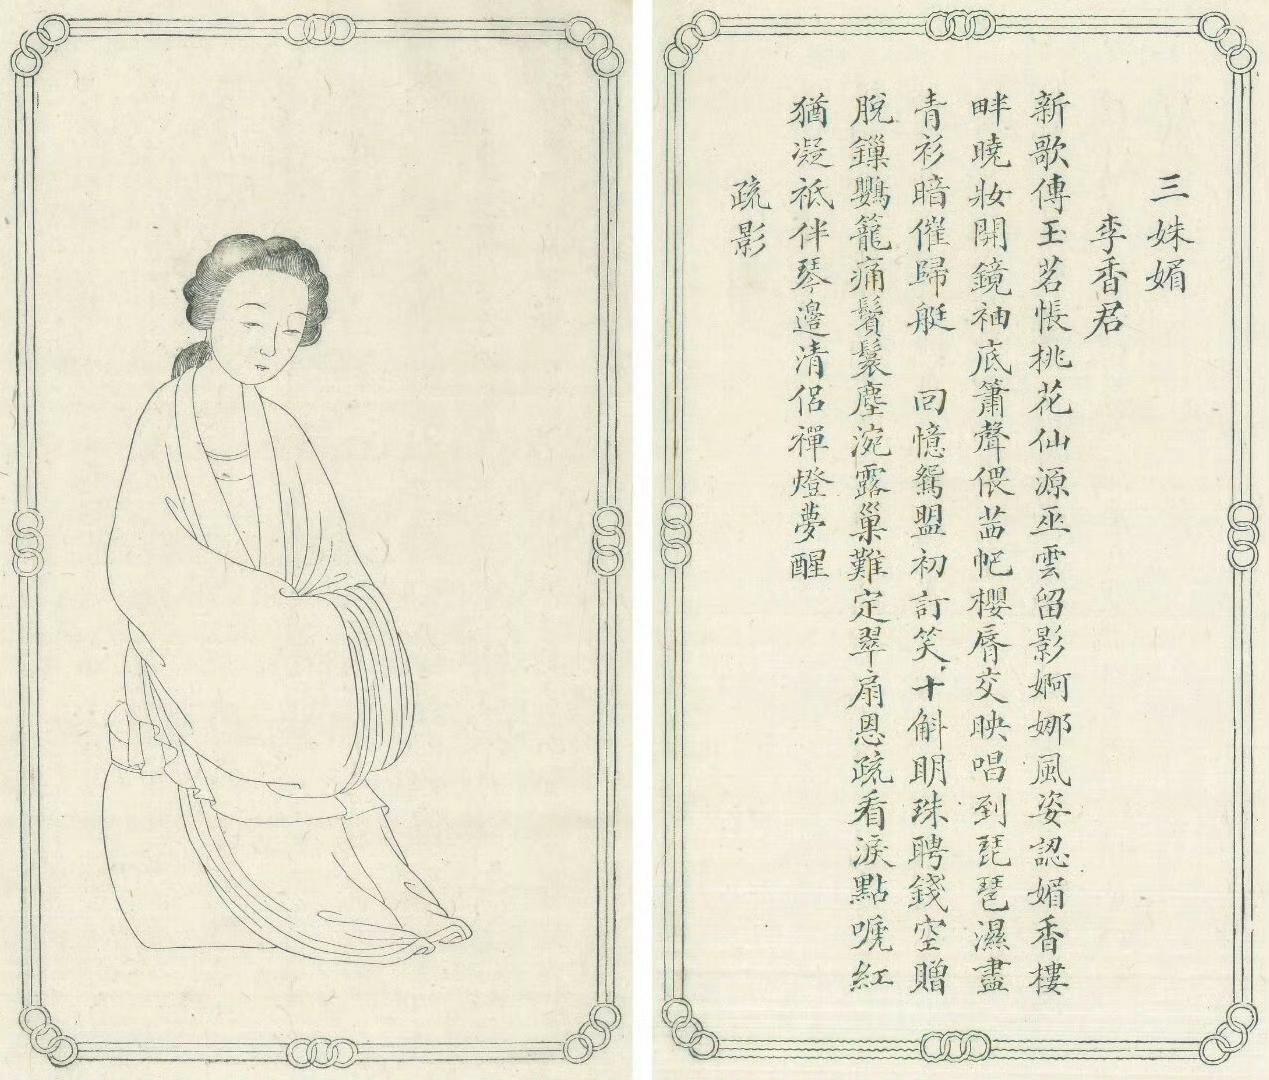 三姝媚
李香君
新歌傳玉茗悵桃花仙源巫雲留影婀娜風姿認媚香樓
畔曉妝開鏡袖底簫聲偎茜帊櫻脣交映唱到琵琶濕盡
青衫暗催歸艇　回憶鴛盟初訂笑十斛明珠聘錢空贈
脫鏁鸚籠痛鬢鬟塵涴露巢難定翠扇恩疏看淚點嗁紅
猶凝祇伴琴邊清侶禪燈夢醒
疏影